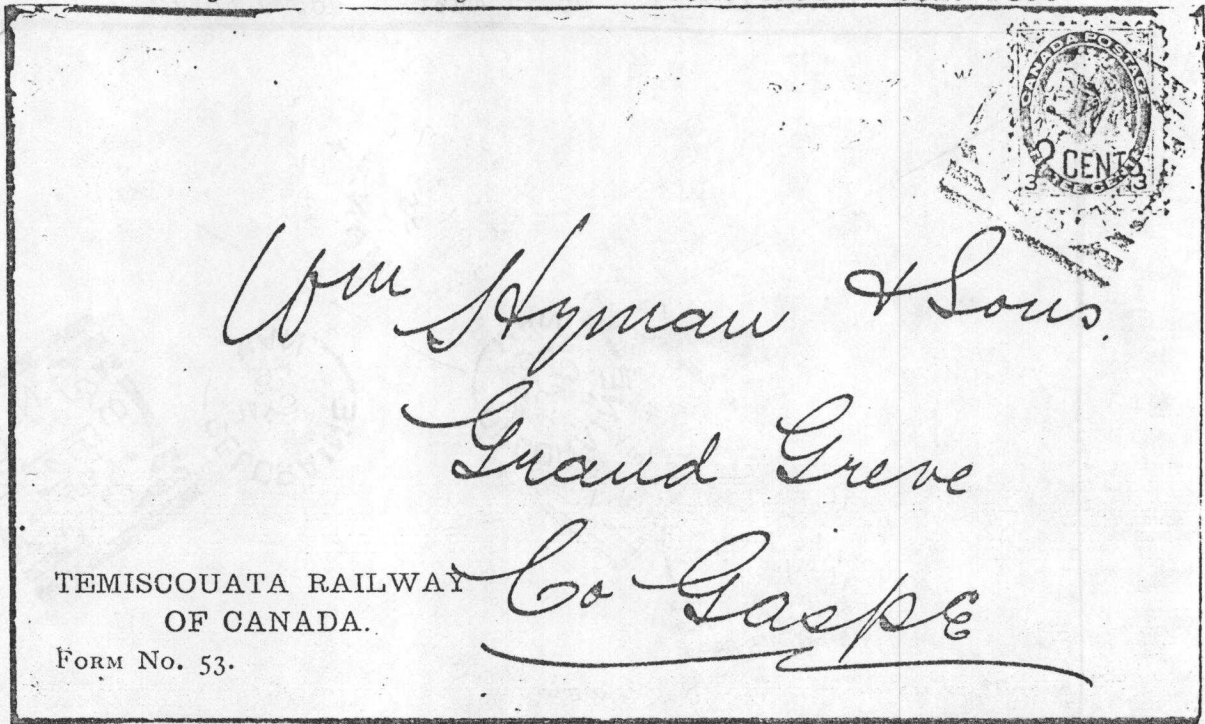 CANADA POSTAGE
2 CENTS
3 3
Wm Hyman & Sons.
Grand Greve
Co Gaspe
TEMISCOUATA RAILWAY
OF CANADA.
FORM No. 53.